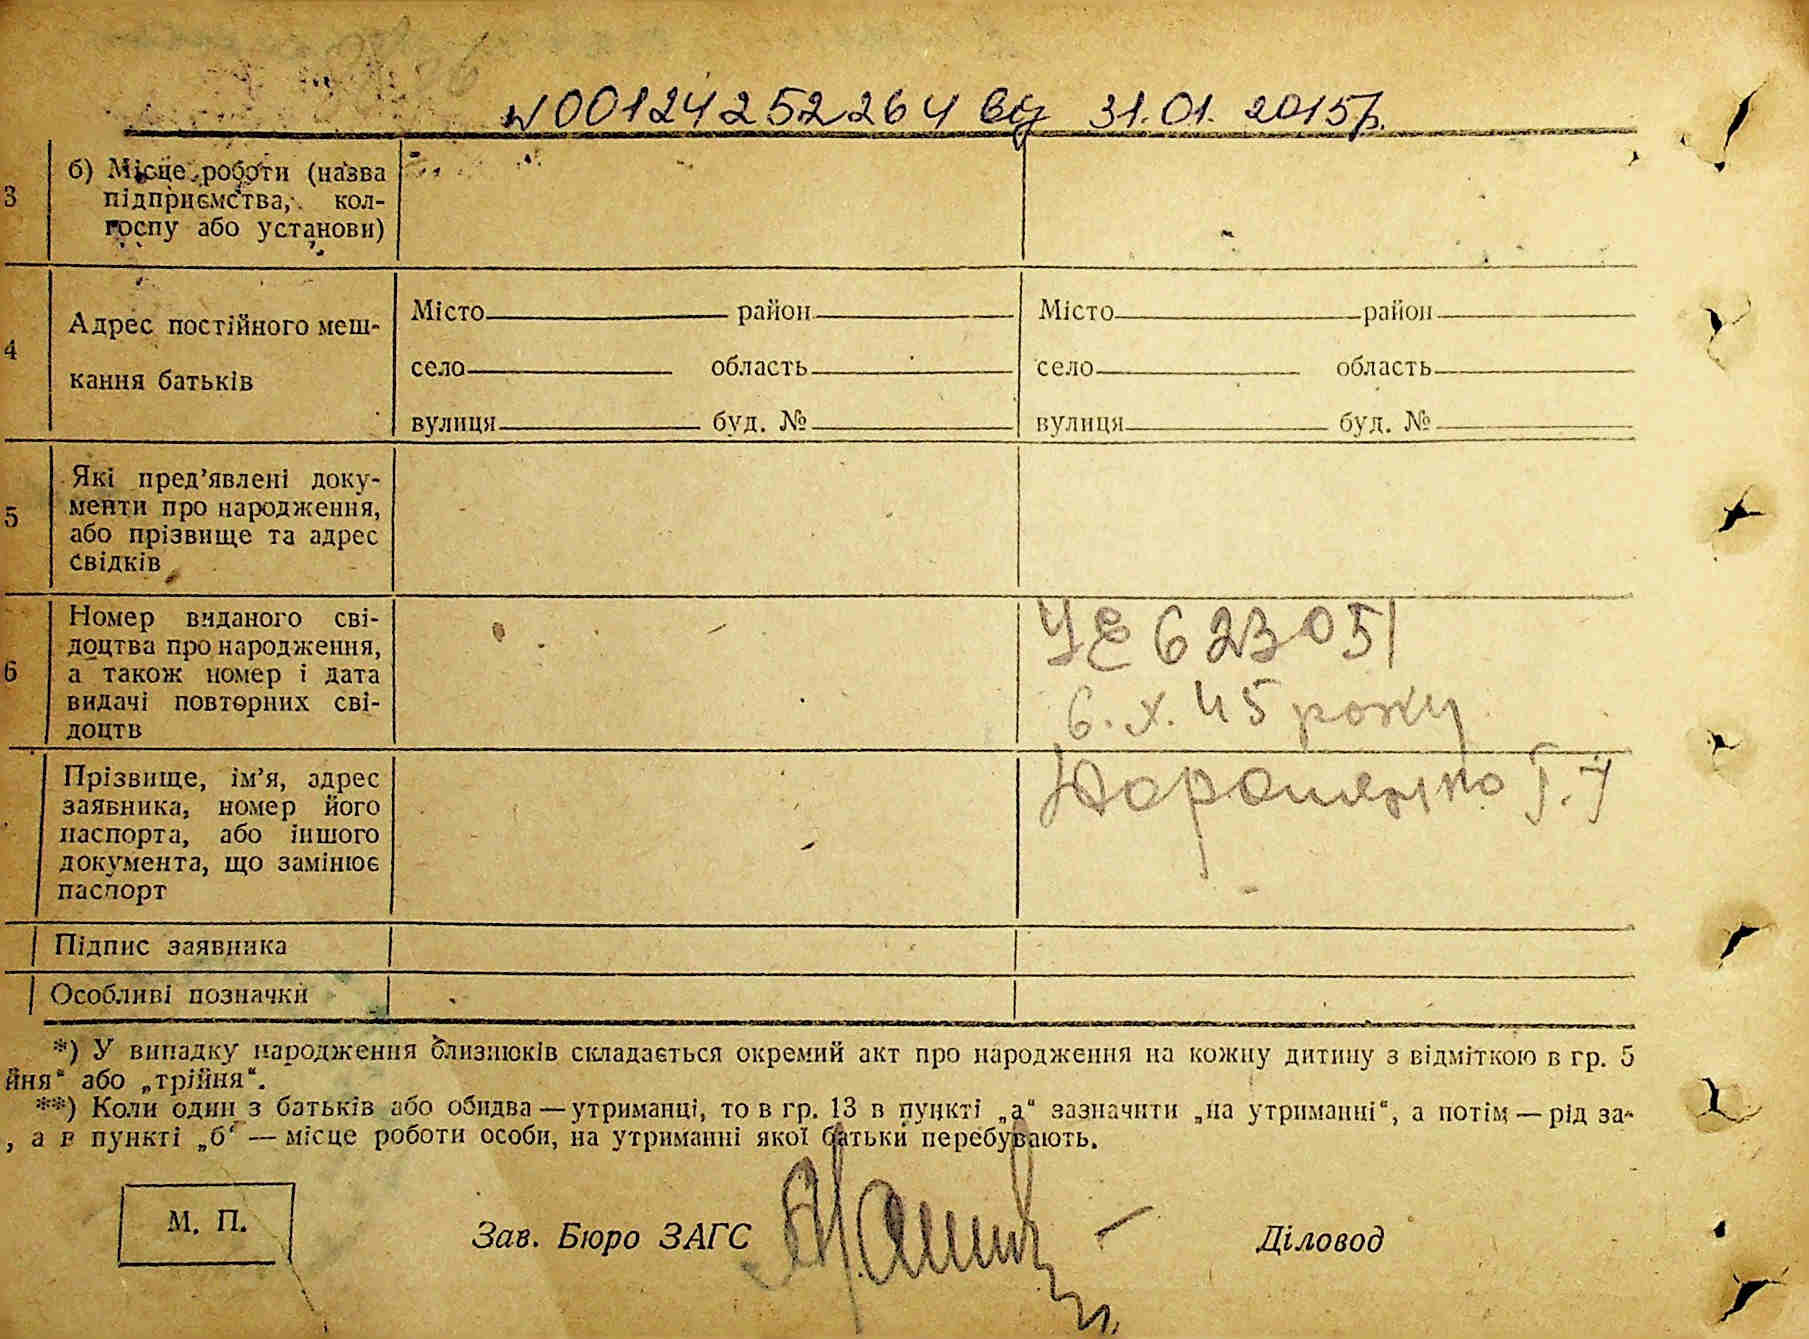 N00124252264 від 31.01.2015р.
3
б) Місце роботи (назва
підприємства, кол-
госпу або установи)
4
Адрес постійного меш-
кання батьків
Місто район
село область
вулиця буд. №
Місто район
село область
вулиця буд. №
5
Які пред’явлені доку-
менти про народження,
або прізвище та адрес
свідків
6
Номер виданого сві-
доцтва про народження,
а також номер і дата
видачі повторних сві-
доцтв
УЕ 623051
6.X.45 року
Прізвище, ім’я, адрес
заявника, номер його
паспорта, або іншого
документа, що замінює
паспорт
Підпис заявника
Особливі позначки
*) У випадку народження близнюків складається окремий акт про народження на кожну дитину з відміткою в гр. 5
йня“ або „трійня“.
**) Коли один з батьків або обидва — утриманці, то в гр. 13 в пункті „а“ зазначити „на утриманні“, а потім — рід за-
, а в пункті „б“ — місце роботи особи, на утриманні якої батьки перебувають.
М. П.
Зав. Бюро ЗАГС
Діловод